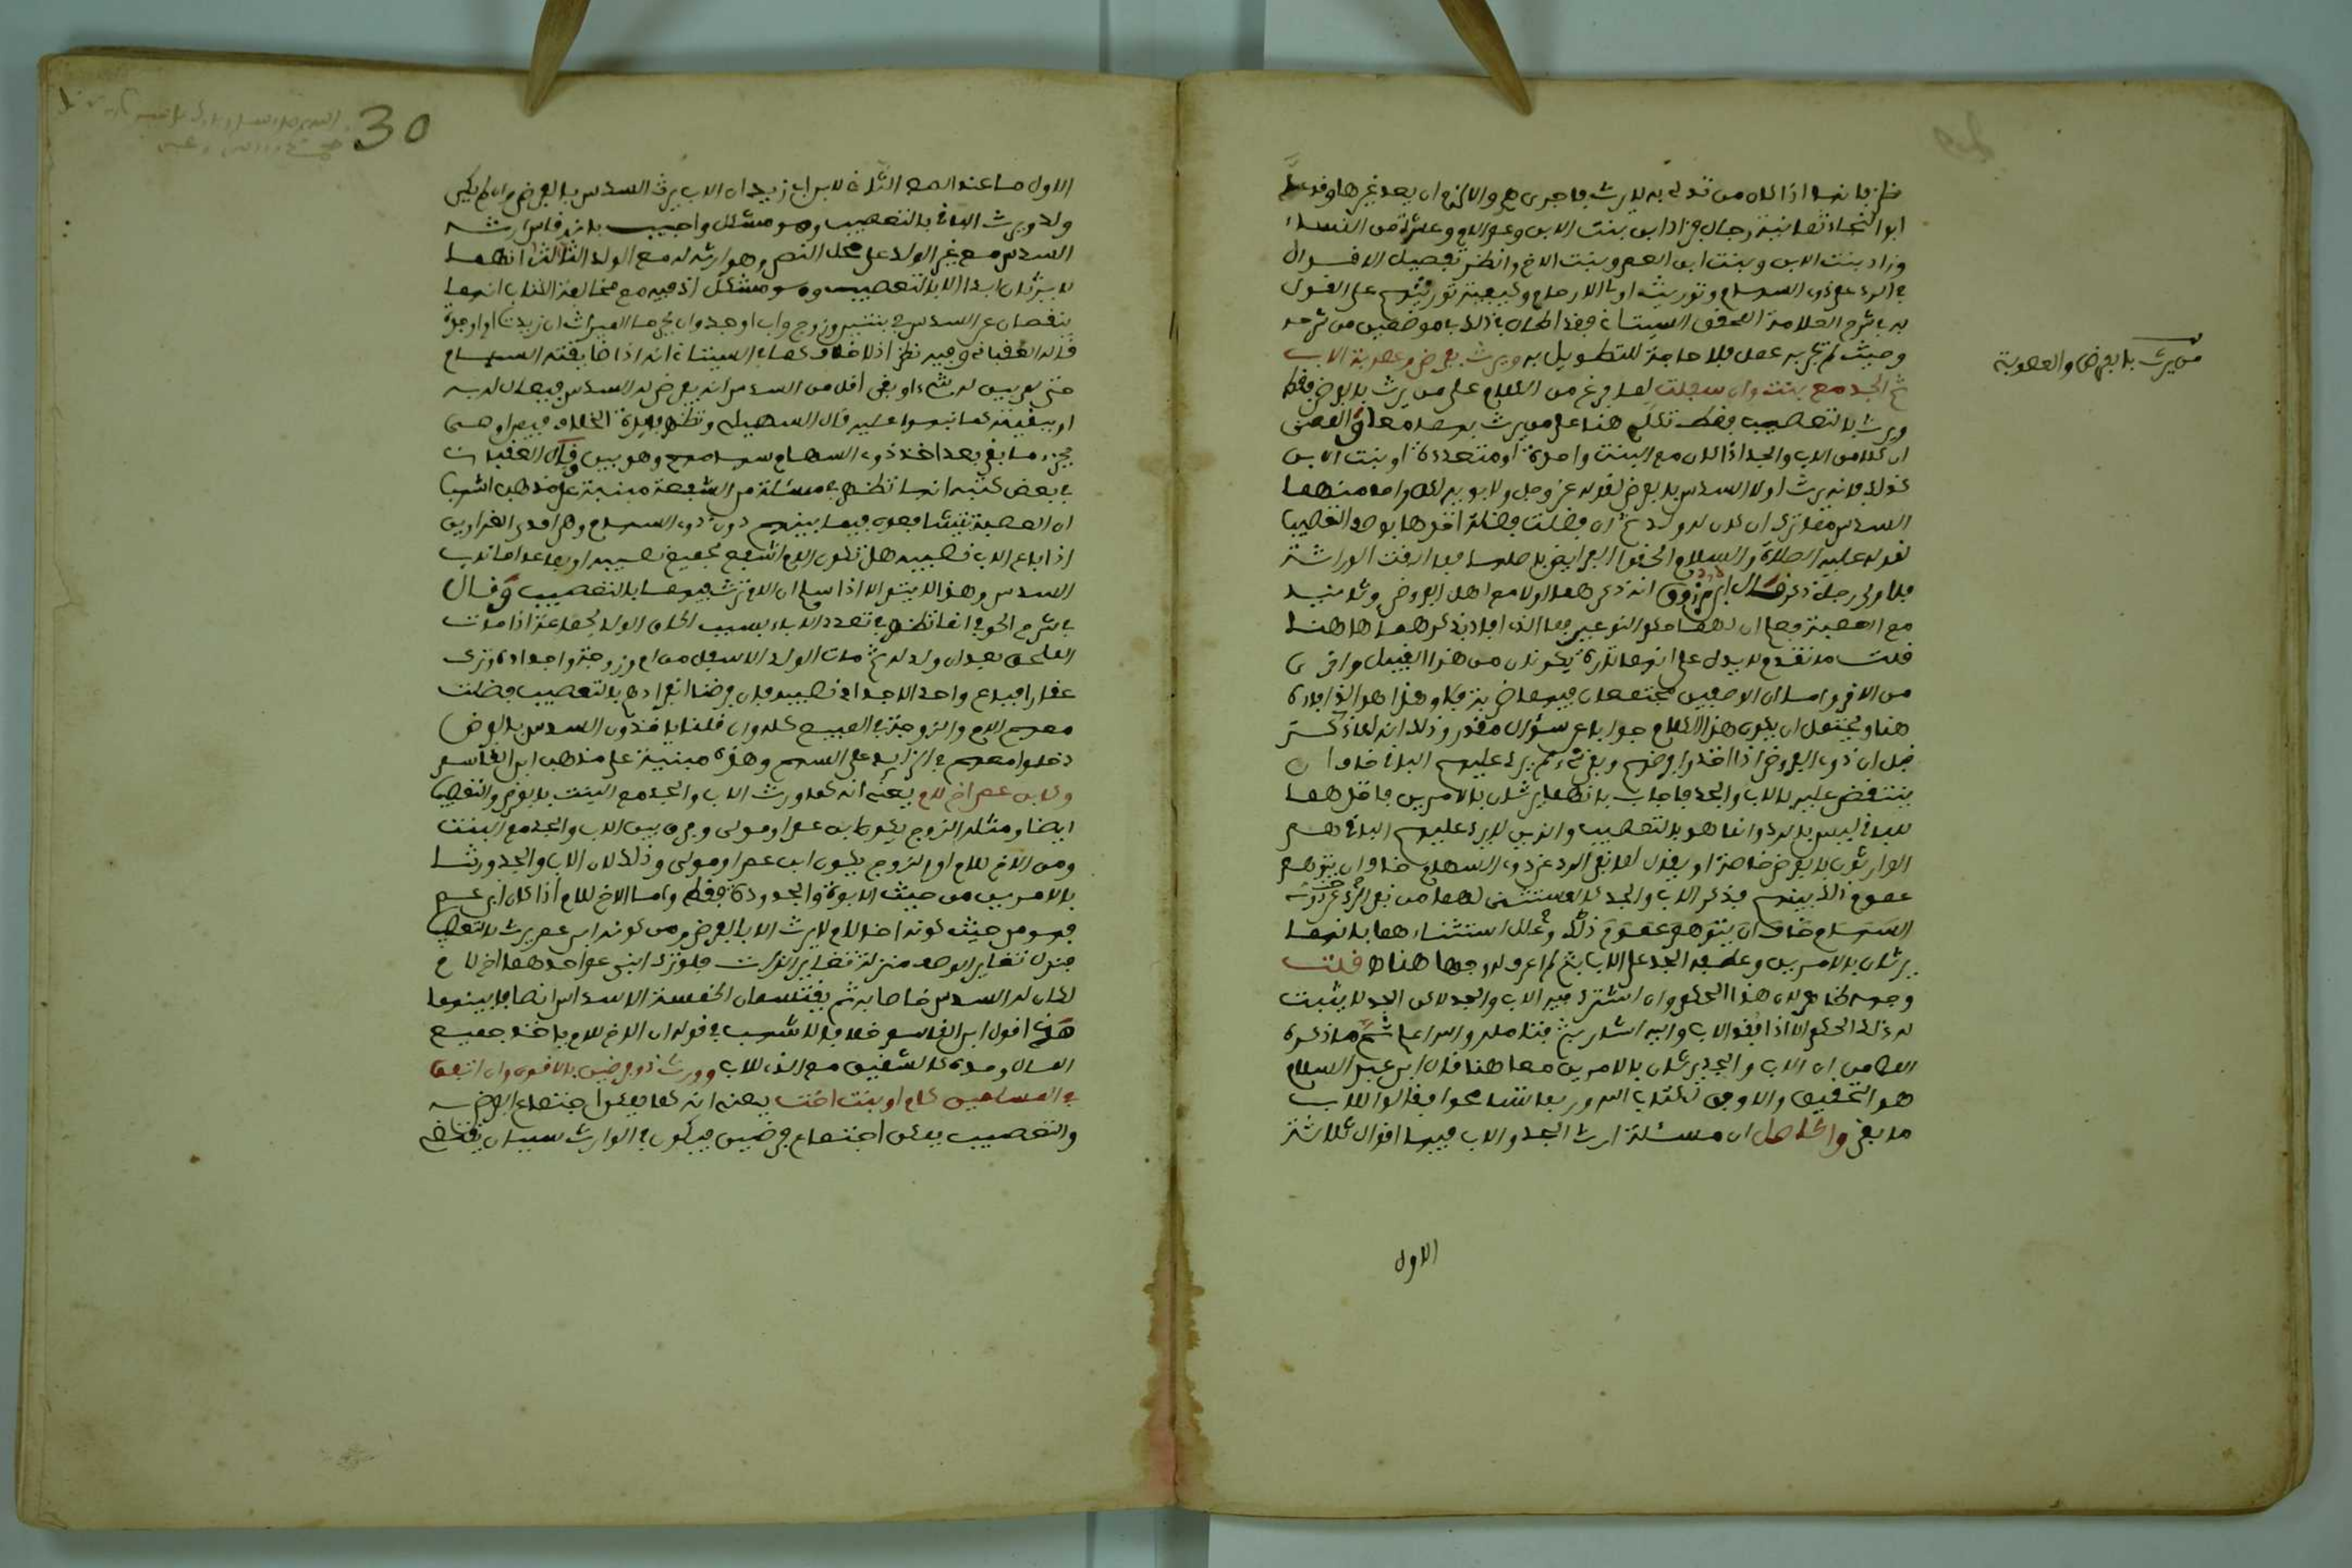 من يرث بالفرض والعصوبة
ابو النجاء ثمانية رجال فزاد ابن بنت الابن وعم الام وعشرة من النساء
وزاد بنت الابن وبنت ابن العم وبنت الاخ وانظر تفصيل الاقوال
في الرد على ذوي السهام وتوريث اولي الارحام وكيفية توريثهم على القول
به في شرح العلامة المحقق السيتاني فقد اطال في ذلك في موضعين من شرحه
وحيث لم يجر به عمل فلا حاجة للتطويل به ويرث بفرض وعصوبة الاب
ثم الجد مع بنت وان سفلت لما فرغ من الكلام على من يرث بالفرض فقط
ويرث بالتعصيب فقط تكلم هنا على من يرث بهما معا والمعنى
ان كلا من الاب والجد اذا كان مع البنت واحدة او متعددة او بنت الابن
كذلك فانه يرث اولا السدس بالفرض لقوله عز وجل ولابويه لكل واحد منهما
السدس مما ترك ان كان له ولد ثم ان فضلت فضلة اخذها بوجه التعصيب
لقوله عليه الصلاة والسلام الحقوا الفرائض باهلها فما ابقت الوراثة
فلاولى رجل ذكر قال ابن مرزوق انه ذكرهما اولا مع اهل الفروض وثانيا
مع العصبة فعلم ان لهما حكم النوعين فما الذي افاد بذكرهما هاهنا
قلت ما تقدم يدل على انهما تارة يكونان من هذا القبيل واخرى
من الاخر واما ان الوصفين مجتمعان فيهما ضربة فلا وهذا هو الذي افاده
هنا ويحتمل ان يكون هذا الكلام جوابا عن سؤال مقدر وذلك انه لما ذكر
قبل ان ذوي الفروض اذا اخذوا فروضهم وبقي شيء لم يرد عليهم الباقي خاف ان
ينتقض عليه بالاب والجد فاجاب بانهما يرثان بالامرين فاخذهما
للباقي ليس بالرد وانما هو بالتعصيب والذين لا يرد عليهم الباقي هم
الوارثون بالفرض خاصة او يقال لما نفى الرد عن ذوي السهام خاف ان يتوهم
عموم ذلك فيهم فذكر الاب والجد كالمستثنى لهما من نفي الرد عن ذوي
السهام خاف ان يتوهم عموم ذلك وعلل استثناءهما بانهما
يرثان بالامرين وعطف الجد على الاب بثم لم اعرف له وجها هنا قلت
وجهه ظاهر لان هذا الحكم وان اشترك فيه الاب والجد لاكن الجد لا يثبت
له ذلك الحكم الا اذا فقد الاب واليه اشار بثم فتامله والله اعلم ثم ما ذكره
المص من ان الاب والجد يرثان بالامرين معا هنا قال ابن عبد السلام
هو التحقيق والاوفق لكتاب الله وربما تسامحوا فقالوا للاب
ما بقي والحاصل ان مسئلة ارث الجد والاب فيها اقوال ثلاثة
الاول
30
الاول ما عند المص الثاني لابن ابي زيد ان الاب يرث السدس بالفرض وان لم يكن
ولد ويرث الباقي بالتعصيب وهو مشكل واجيب بانه قاس ارثه
السدس مع غير الولد على محل النص وهو ارثه له مع الولد الثالث انهما
لا يرثان ابدا الا بالتعصيب وهو مشكل اذ فيه مع مخالفة الكتاب انهما
ينقصان عن السدس في بنتين وزوج واب او جد
قاله العقباني وفيه نظر اذ لا خلاف كما في السيتاني انه اذا ضايقته السهام
حتى لم يبق له شيء او بقي اقل من السدس انه يفرض له السدس فيعال له به
او ببقيته كما نصوا عليه قال السهيلي وتظهر فائدة الخلاف فيمن اوصى
بجزء مما بقي بعد اخذ ذوي السهام سهامهم وهو بين وقال العقباني
في بعض كتبه انها تظهر في مسئلة من الشفعة مبنية على مذهب اشهب
ان العصبة يتشافعون فيما بينهم دون ذوي السهام
اذا باع الاب نصيبه هل تكون الام اشفع بجميع نصيبه او بما عدا
السدس وهذا لا يتم الا اذا سلم ان الام ترث فيهما بالتعصيب وقال
في شرح الحوفي انما تظهر في تعدد الاباء بسبب الحاق الولد بجماعة اذا مات
الملحق بعد ان ولد له ثم مات الولد الاسفل عن ام وزوجة واجداده وترك
عقارا فباع واحد الاجداد نصيبه فان فرضنا انفرادهم بالتعصيب فضلت
معهم الام والزوجة في المبيع كله وان قلنا ياخذون السدس بالفرض
دخلوا معهم في الزايد على السهم وهذه مبنية على مذهب ابن القاسم
وكابن عم اخ لام يعني انه كما ورث الاب والجد مع البنت بالفرض والتعصيب
ايضا ومثله الزوج يكون ابن عم او مولى وفرق بين الاب والجد مع البنت
وبين الاخ للام او الزوج يكون ابن عم او مولى وذلك لان الاب والجد ورثا
بالامرين من حيث الابوة والجدودة فقط واما الاخ للام اذا كان ابن عم
فهو من حيث كونه اخا للام لا يرث الا بالفرض ومن كونه ابن عم يرث بالتعصيب
فنزل تغاير الوصف منزلة تغاير الذات فلو ترك ابني عم احدهما اخ لام
لكان له السدس خاصا به ثم يقتسمان الخمسة الاسداس انصافا بينهما
هذا قول ابن القاسم خلافا لاشهب في قوله ان الاخ للام ياخذ جميع
المال وحده كالشقيق مع الذي للاب وورث ذو فرضين بالاقوى وان اتفق
في المسلمين كام او بنت اخت يعني انه كما يمكن اجتماع الفرض
والتعصيب يمكن اجتماع فرضين فيكون في الوارث سببان